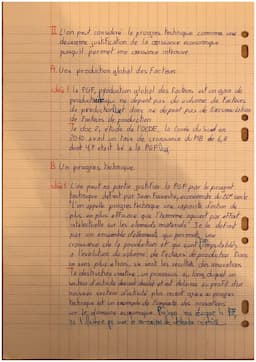 II L'on peut considérer le progrès technique comme une
deuxième justification de la croissance économique
puisqu'il permet une croissance intensive.
A. Une production global des facteurs
idée 1 la PGF, production global des facteurs est un gain de
production qui ne dépend pas du volume de facteurs
de production, donc ne dépend pas de l'accumulation
de facteurs de production
Le doc 2, étude de l'OCDE, la Corée du Sud en
2010 avait un taux de croissance du PIB de 6,8
dont 4,7 était lié à la PGF
B. Un progrès technique
idée 1 L'on peut en partie justifier la PGF par le progrès
technique définit par Jean Fourastié, économiste du 20e siècle
"L'on appelle progrès technique une capacité d'action de
plus en plus efficace que l'homme acquiert par effort
intellectuelle sur les éléments matériels". Il se définit
par un ensemble d'éléments qui permet une
croissance de la production et qui sont imputables
à l'évolution du volume de facteurs de production. Dans
un sens plus étroit, ce sont les résultats des innovations
La destruction créatrice, un processus au long duquel un
secteur d'activité devient désuet et est délaissé au profit d'un
nouveau secteur d'activité plus récent grâce au progrès
technique est un exemple de l'impacte des innovations
sur le domaine économique.